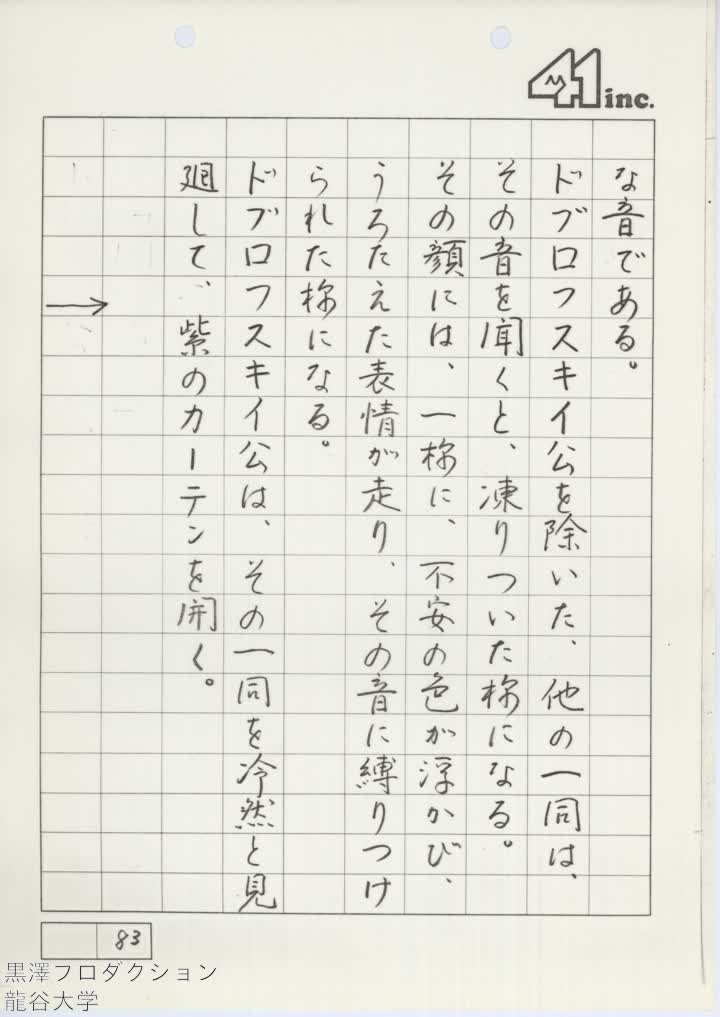 41 inc.
な音である。
ドブロフスキイ公を除いた、他の一同は、
その音を聞くと、凍りついた様になる。
その顔には、一様に、不安の色が浮かび、
うろたえた表情が走り、その音に縛りつけ
られた様になる。
ドブロフスキイ公は、その一同を冷然と見
廻して、紫のカーテンを開く。
83
黒澤プロダクション
龍谷大学